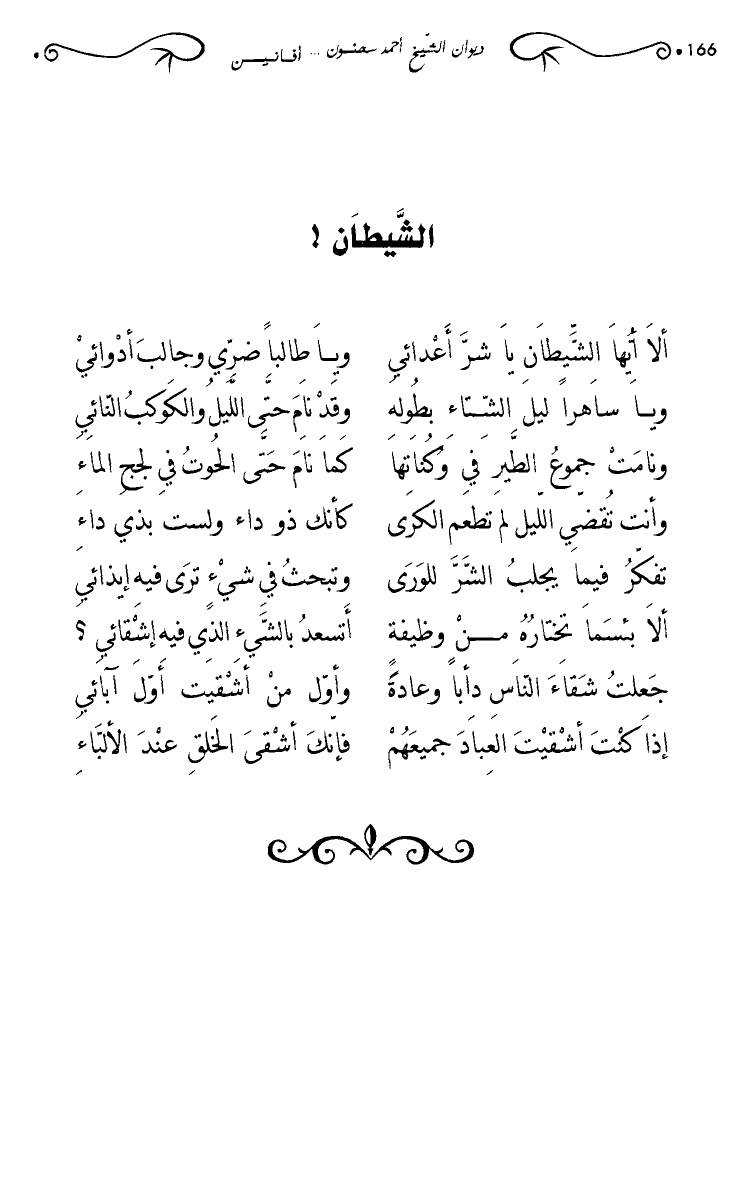 166 ديوان الشّيخ أحمد سحنون ... أفانيـن
الشَّيطَان !
ألاَ أيّهاَ الشّيطاَنِ ياَ شرَّ أَعْدائي ويـاَ طالباً ضرِّي وجالبَ أدْوائيْ
ويـا ساهراً ليل الشّتـاء بطُوله وقدْ نامَ حتَّى اللّيلُ والكَوكبُ النّائي
ونامَتْ جموعُ الطَّيرِ في وُكُنَاتها كَما نامَ حَتَّى الحُوتُ في لججِ الماءِ
وأنت تُقضّي اللّيل لم تطعم الكرى كأنك ذو داء ولست بذي داءِ
تفكّرُ فيما يجلبُ الشَّرَّ للورَى وتبحثُ في شيْءٍ ترَى فيه إيذائي
ألاَ بئسَما تختارُهُ مـــنْ وظيفةٍ أتسعدُ بالشَّيءِ الذي فيه إشْقائي ؟
جَعلتُ شَقاءَ النّاسِ دأباً وعادةً وأوّل منْ أشْقيت أوّل آبائي
إذا كنْتَ أشْقيْتَ العبادَ جميعَهُمْ فإنّكَ أشْقىَ الخلقِ عنْدَ الألبَّاءِ